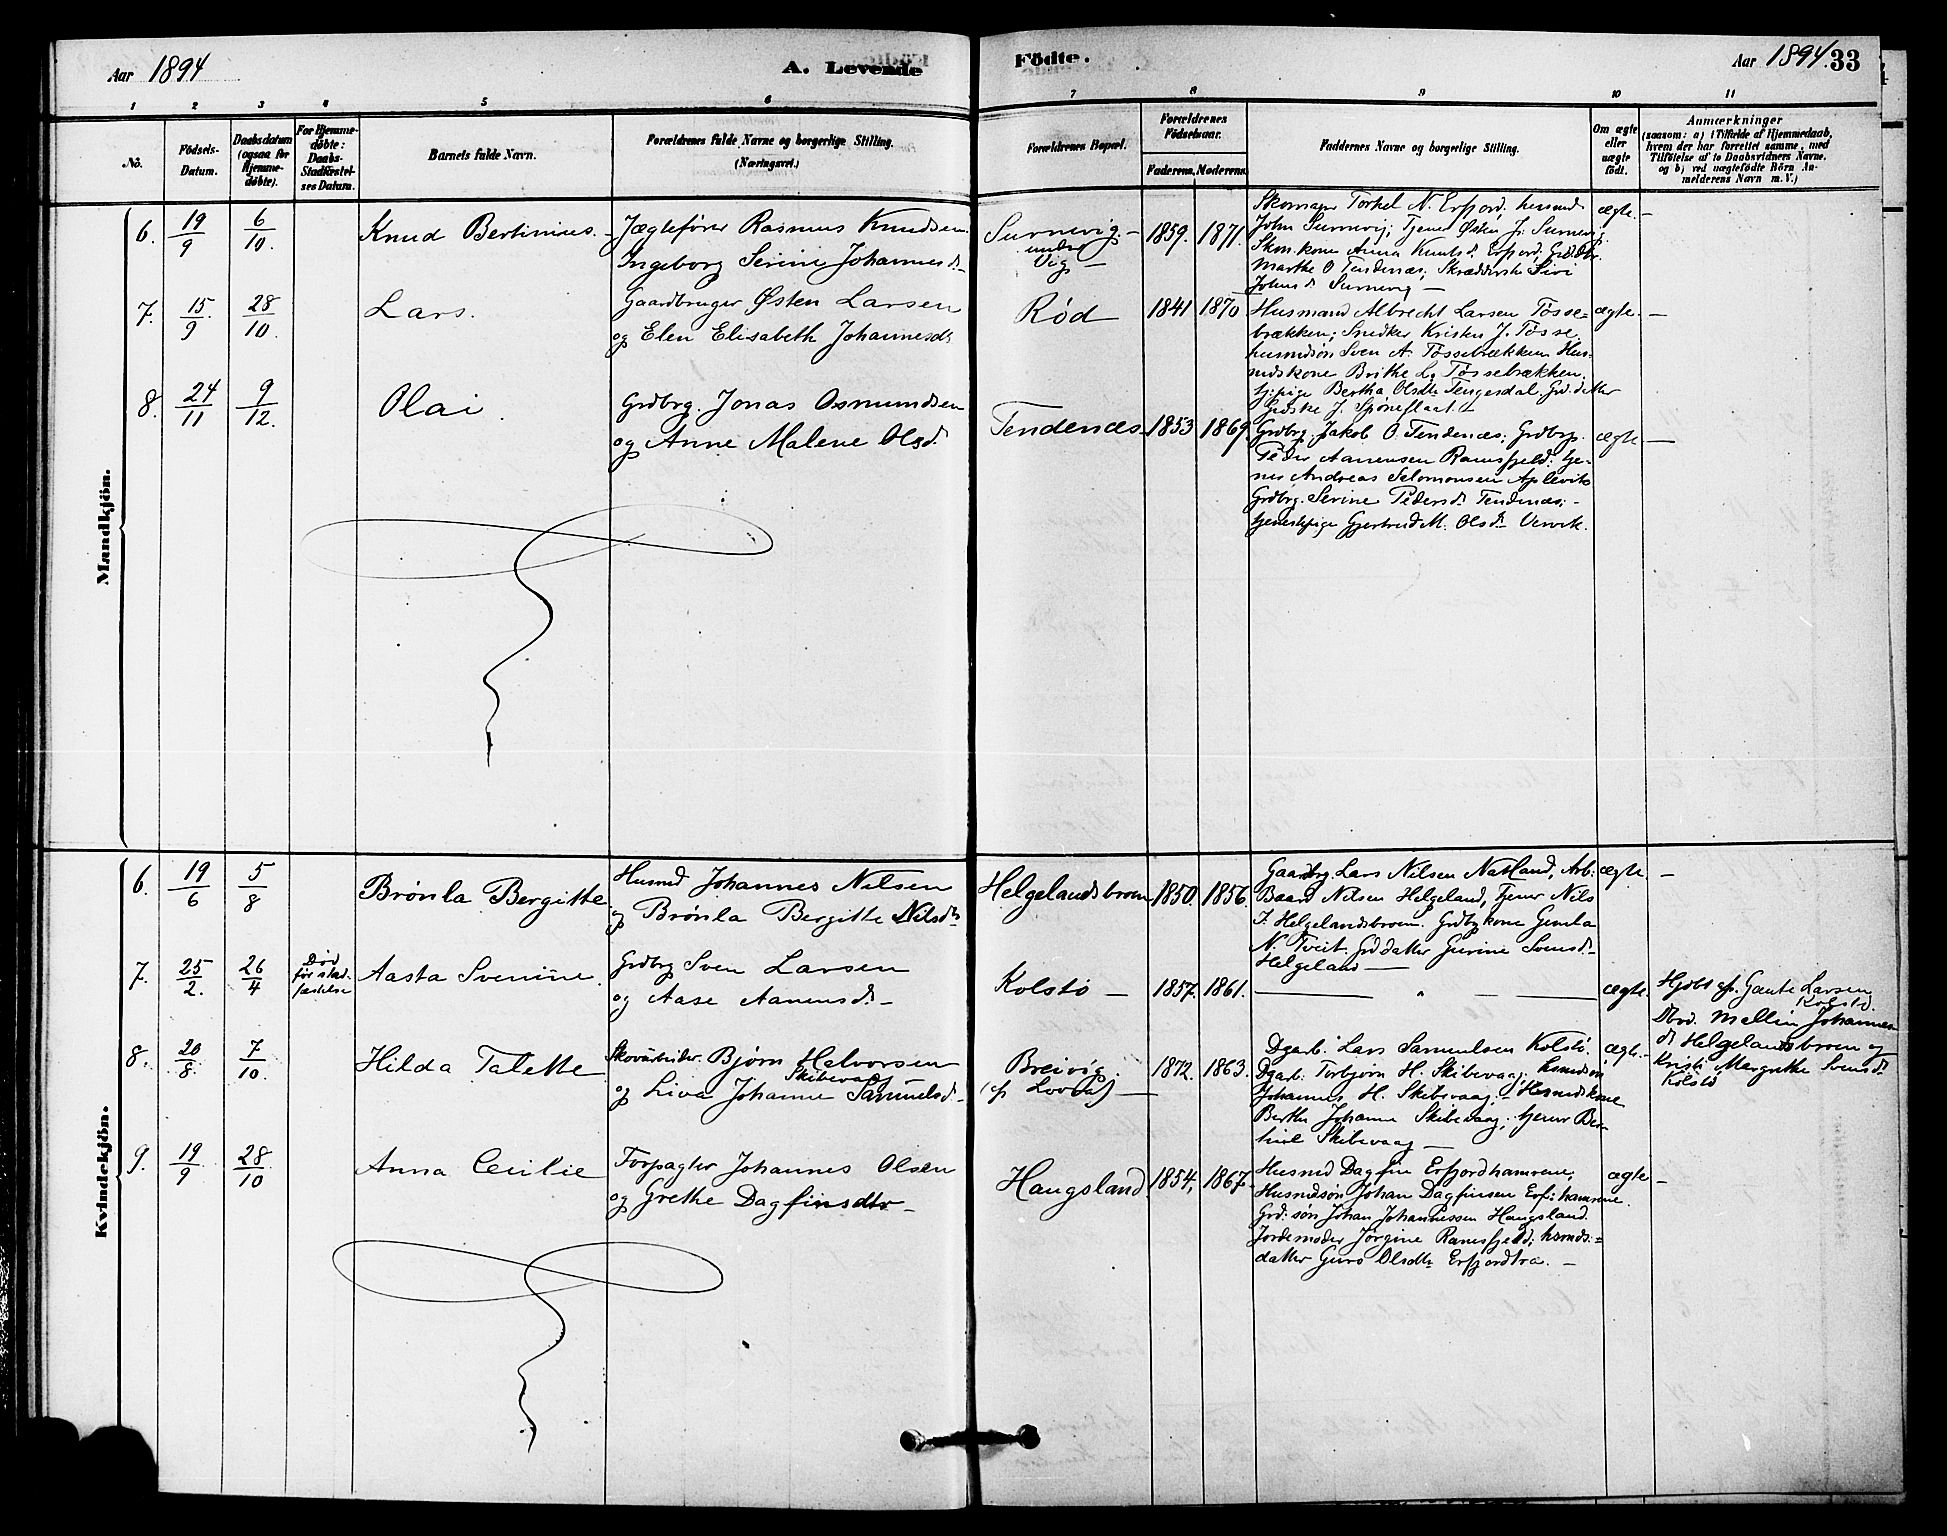 Aar 1894
A. Levende
Födte.
Aar 1894. 33
1 2 3 4 5 6 7 8 9 10 11
No.
Födsels-
Datum.
Daabsdatum
(ogsaa for
Hjemme-
döbte).
For Hjemme-
döbte:
Daabs-
Stadfæstel-
ses Datum.
Barnets fulde Navn.
Forældrenes fulde Navne og borgerlige Stilling.
(Næringsvei.)
Forældrenes Bopæl.
Forældrenes
Födselsaar.
Faderens. Moderens.
Faddernes Navne og borgerlige Stilling.
Om ægte
eller
uægte
födt.
Anmærkninger
(saasom: a) i Tilfælde af Hjemmedaab,
hvem der har forrettet samme, med
Tilföielse af to Daabsvidners Navne,
og b) ved uægtefödte Börn An-
melderens Navn m. V.)
Mandkjön.
6. 19/9 6/10. Knud Bertinius.
Jægtefører Rasmus Knudsen
Ingeborg Serine Johannesd.
Survevig.
under
Vig
1859. 1871.
Skomager Torkel N. Erfjord, husmd
John Survevig; Tjener Østen J. Survevig
Skm.kone Anna Knutsd. Erfjord, Grd.dtr.
Marthe O Tendenæs; Skrædderske Siri
Johnsd. Survevig
ægte. —
7. 15/9 28/10. Lars.
Gaardbruger Østen Larsen
og Elen Elisabeth Johannesdr
Rød
1841 1870
Husmand Albrecht Larsen Tøsse-
brækken; Snedker Kristen J. Tøsse,
husmdsøn Sven A. Tøssebrækken Hus-
mdskone Brithe L. Tøssebrækken.
tj.pige Bertha Olsdtr Tengesdal, Grd.datter
J. Sponeflaat.
ægte. —
8. 24/11 9/12. Olai.
Grdbrg. Jonas Osmundsen
og Anne Malene Olsd.
Tendenæs
1853 1869
Grdbrg. Jakob O. Tendenæs; Grdbrg.
Peder Aanensen Ramsfjeld; tje-
ner Andreas Selomonsen Aplevik
Grdbrg. Serine Pedersd. Tendenæs;
tjenestepige Gjertrud M. Olsd. Vervik.
ægte —
Kvindekjön.
6. 19/6 5/8 Brønla Bergitte
Husmd Johannes Nilsen
og Brønla Bergitte Nilsdtr
Helgelandsbroen
1850. 1856.
Gaardbrg. Lars Nilsen Natland, Arb:
Baard Nilsen Helgeland, Tjener Nils
J. Helgelandsbroen. Grdbrkone Gunla
N. Tveit. Grd datter Gurine Svensd.
Helgeland
ægte. —
7. 25/2. 26/4
Død
før stad-
fæstelse
Aasta Svenine.
Grdbrg Sven Larsen
og Aase Aanensd.
Kolstø
1857. 1861.
— " —
ægte.
Hjdbt af Gaute Larsen
Kolstø.
Dbvd. Mallin Johannes-
d. Helgelandsbroen og
Kristi Margrethe Svensd.
Kolstø
8. 20/8. 7/10. Hilda Talette
Skovarbeider Bjørn Halvorsen
Skibevaag
og Liva Johanne Samuelsd.
Breivig.
(p Lovra)
1872. 1863.
Dgarb. Lars Samuelsen Kolstø.
Dgarb. Torbjørn H. Skibevaag; husmdsøn
Johannes H. Skibevaag; Husmdskone
Berthe Johanne Skibevaag; tjener Ber-
Skibevaag
ægte.
9. 19/9 28/10 Anna Cecilie
Forpagter Johannes Olsen
og Grethe Dagfinsdtr
Haugsland
1854, 1867.
Husmd Dagfin Erfjordhamrene;
Husmdsøn Johan Dagfinsen Erf:hamrene.
Grd:søn Johan Johannessen Haugsland.
Jordemoder Jørgine Ramsfjeld; husmds:
datter Guro Olsdtr Erfjordtra.
ægte —